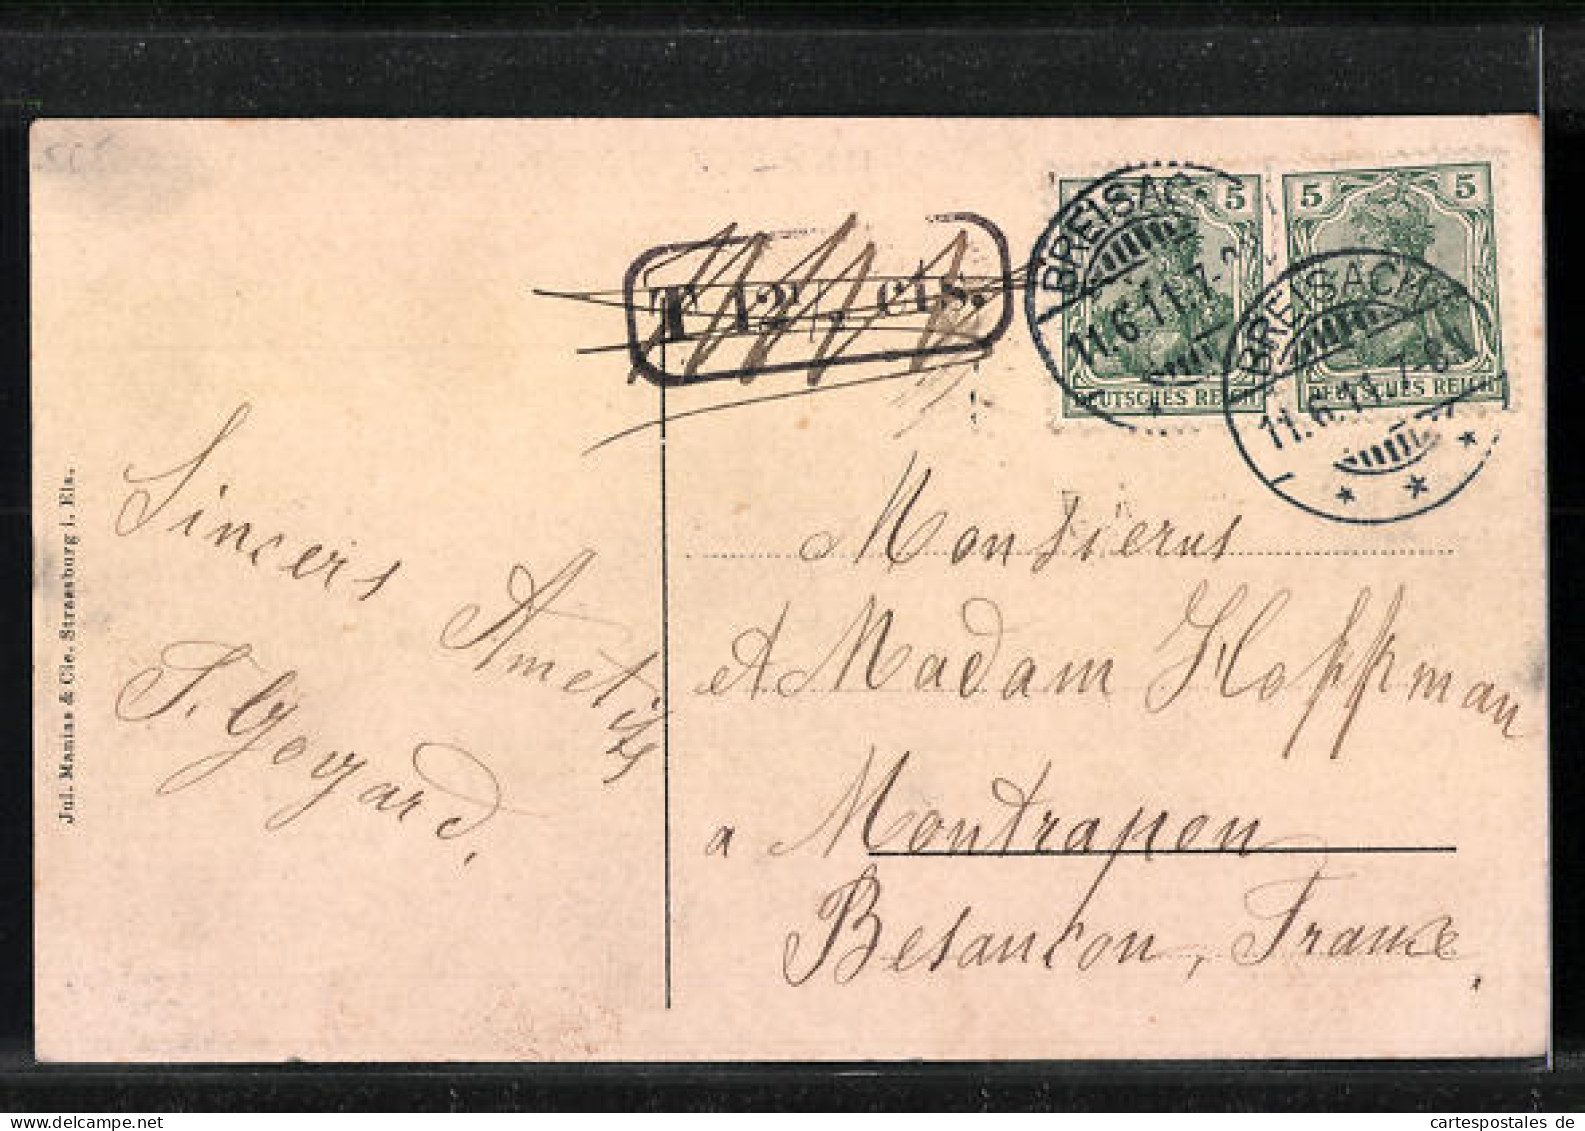 T 12½ cts.
5
5
BREISACH
11.6.11. 7-8
DEUTSCHES REICH
BREISACH
11.6.11. 7-8 N
DEUTSCHES REICH
Sincers
Ametiés
J. Goyard,
Monsierus
A Madam Hoffman
a Montrapon
Besancon, France
Jul. Manias & Cie. Strassburg i. Els.
cartespostales de